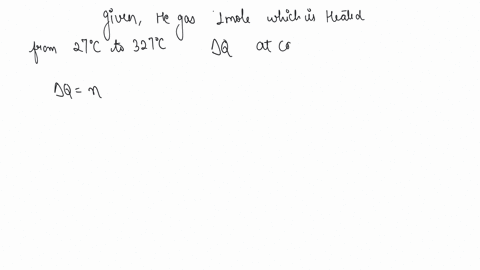 given, He gas 1mole which is Heated
from 27°C to 327°C ΔQ at co
ΔQ = n